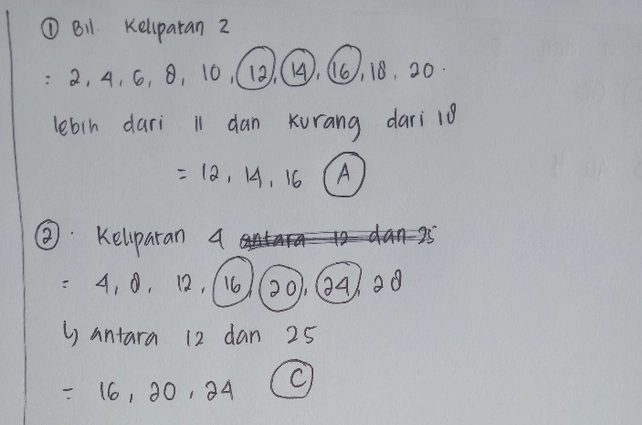 ① Bil. Kelipatan 2
= 2, 4, 6, 8, 10, 12, 14, 16, 18, 20.
lebih dari 11 dan kurang dari 18
= 12, 14, 16 A
② . Kelipatan 4 antara 12 dan 25
= 4, 8, 12, 16, 20, 24, 28
↳ antara 12 dan 25
= 16, 20, 24 C